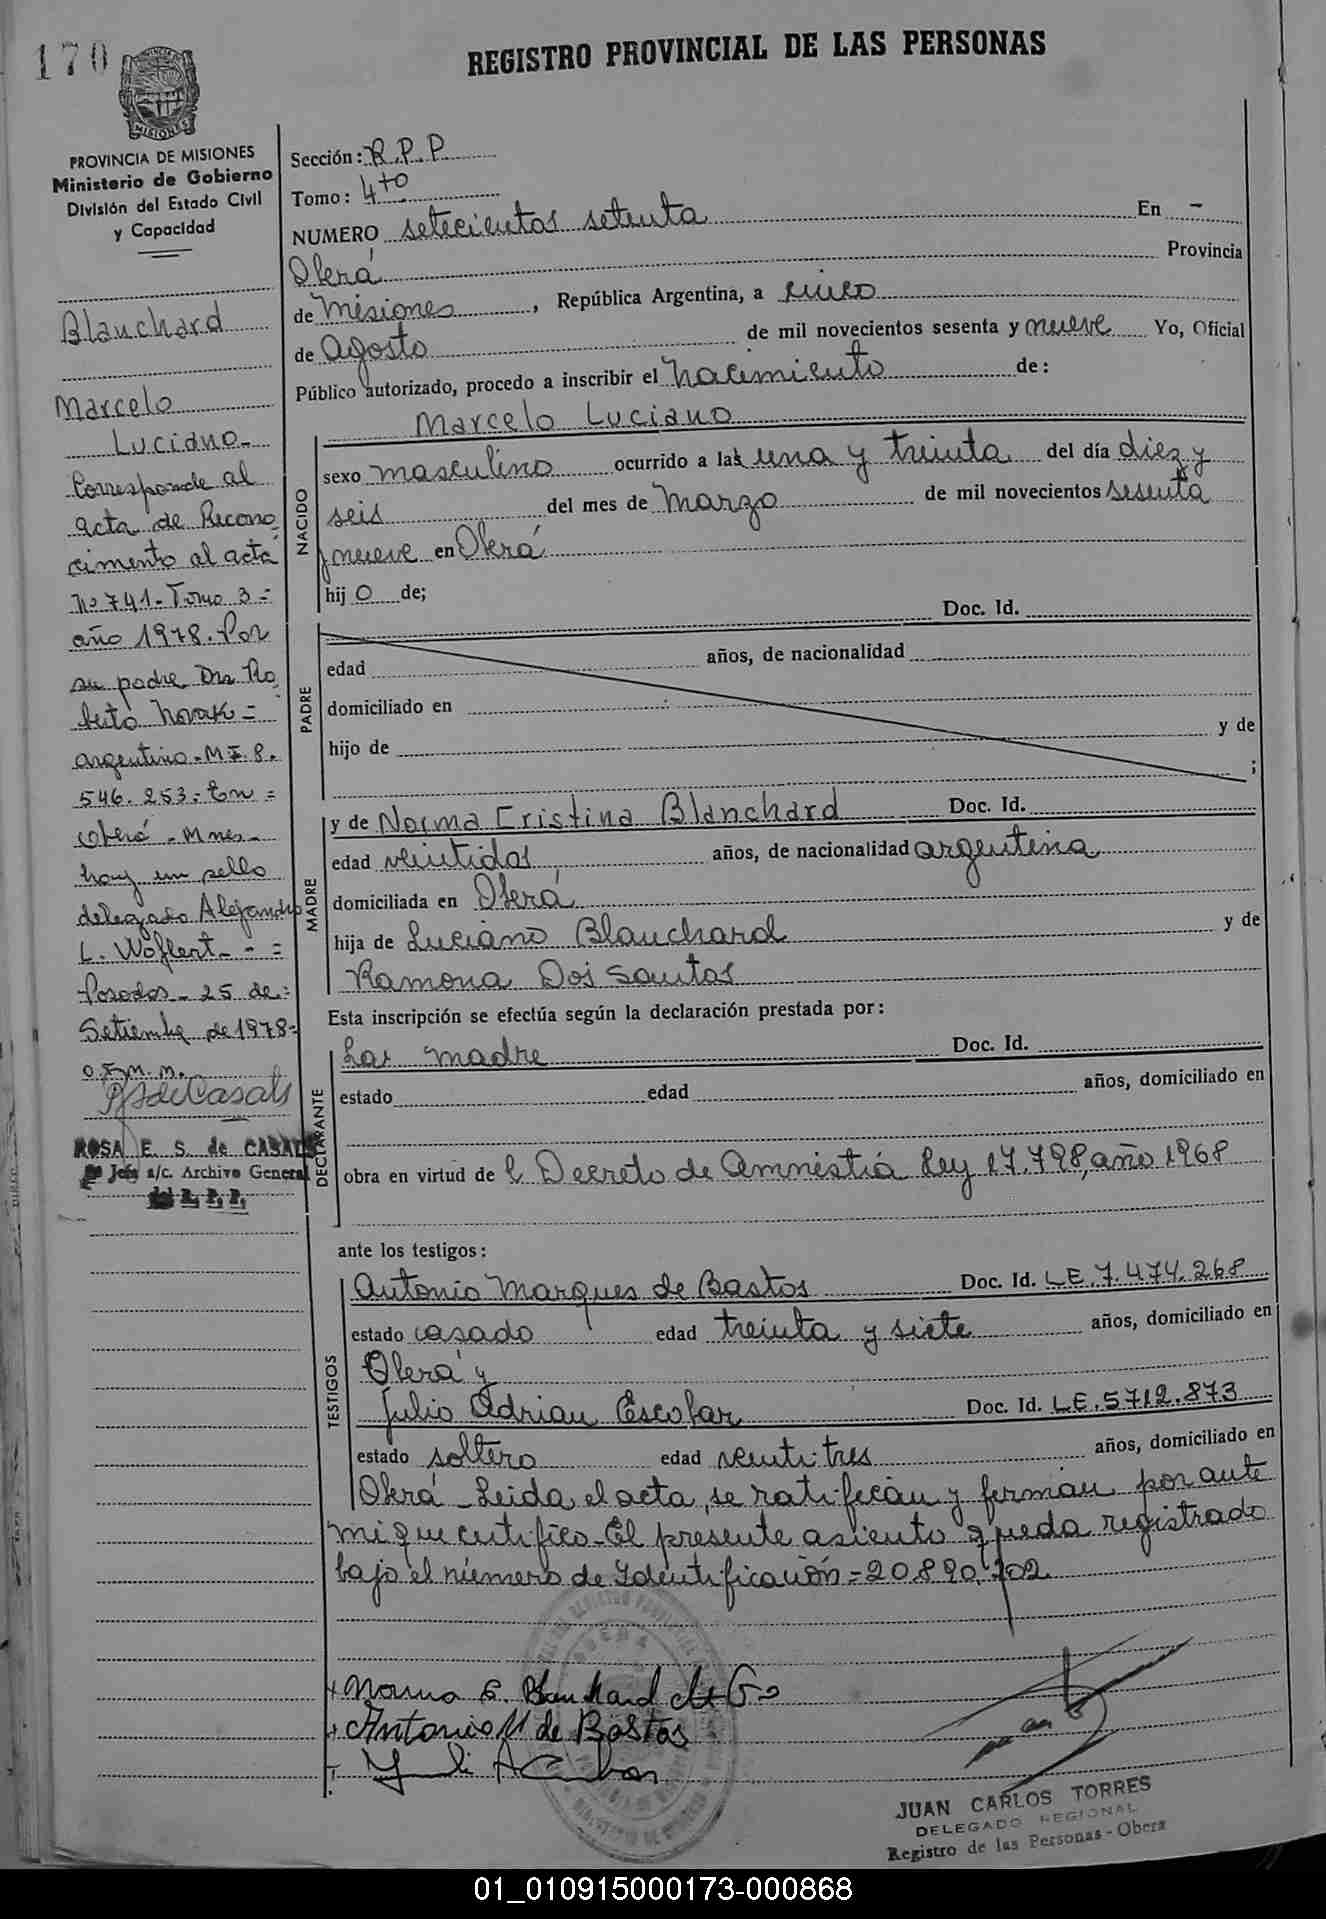 170
REGISTRO PROVINCIAL DE LAS PERSONAS
MISIONES
PROVINCIA DE MISIONES
Ministerio de Gobierno
División del Estado Civil
y Capacidad
Blanchard
Marcelo
Luciano.-
Corresponde al
acta de Recono
cimento al acta
Nº 741.- Tomo 3 =
año 1978. Por
su padre Dn Ro
berto Novak =
argentino. M I. 8.
546. 253.- En =
Oberá - Mnes -
hay un sello
delegado Alejandro
L. Woflert. - =
Posadas - 25 de =
Setiembre de 1978 =
ROSA E. S. de CASALS
Jefa a/c. Archivo General
del R. P. P.
Sección: R.P.P
Tomo: 4to
NUMERO setecientos setenta En -
Oberá Provincia
de Misiones, República Argentina, a cinco
de Agosto de mil novecientos sesenta y nueve Yo, Oficial
Público autorizado, procedo a inscribir el Nacimiento de:
Marcelo Luciano
NACIDO
sexo masculino ocurrido a las una y treinta del día diez y
seis del mes de Marzo de mil novecientos sesenta
y nueve en Oberá
hij o de;
Doc. Id.
PADRE
edad años, de nacionalidad
domiciliado en
hijo de y de
;
MADRE
y de Norma Cristina Blanchard Doc. Id.
edad veintidos años, de nacionalidad argentina
domiciliada en Oberá
hija de Luciano Blanchard y de
Ramona Dos Santos
Esta inscripción se efectúa según la declaración prestada por:
DECLARANTE
La madre Doc. Id.
estado edad años, domiciliado en
obra en virtud de l Decreto de Amnistia Ley 17.798, año 1968
ante los testigos:
TESTIGOS
Antonio Marques de Bastos Doc. Id. LE. 7.474.268
estado casado edad treinta y siete años, domiciliado en
Oberá y
Julio Adrian Escobar Doc. Id. LE. 5712.873
estado soltero edad veintitres años, domiciliado en
Oberá - Leida el acta, se ratifican y firman por ante
mi que certifico - El presente asiento queda registrado
bajo el número de Identificación = 20.890.702
Norma C. Blanchard
Antonio M de Bastos
JUAN CARLOS TORRES
DELEGADO REGIONAL
Registro de las Personas - Obera
01_010915000173-000868